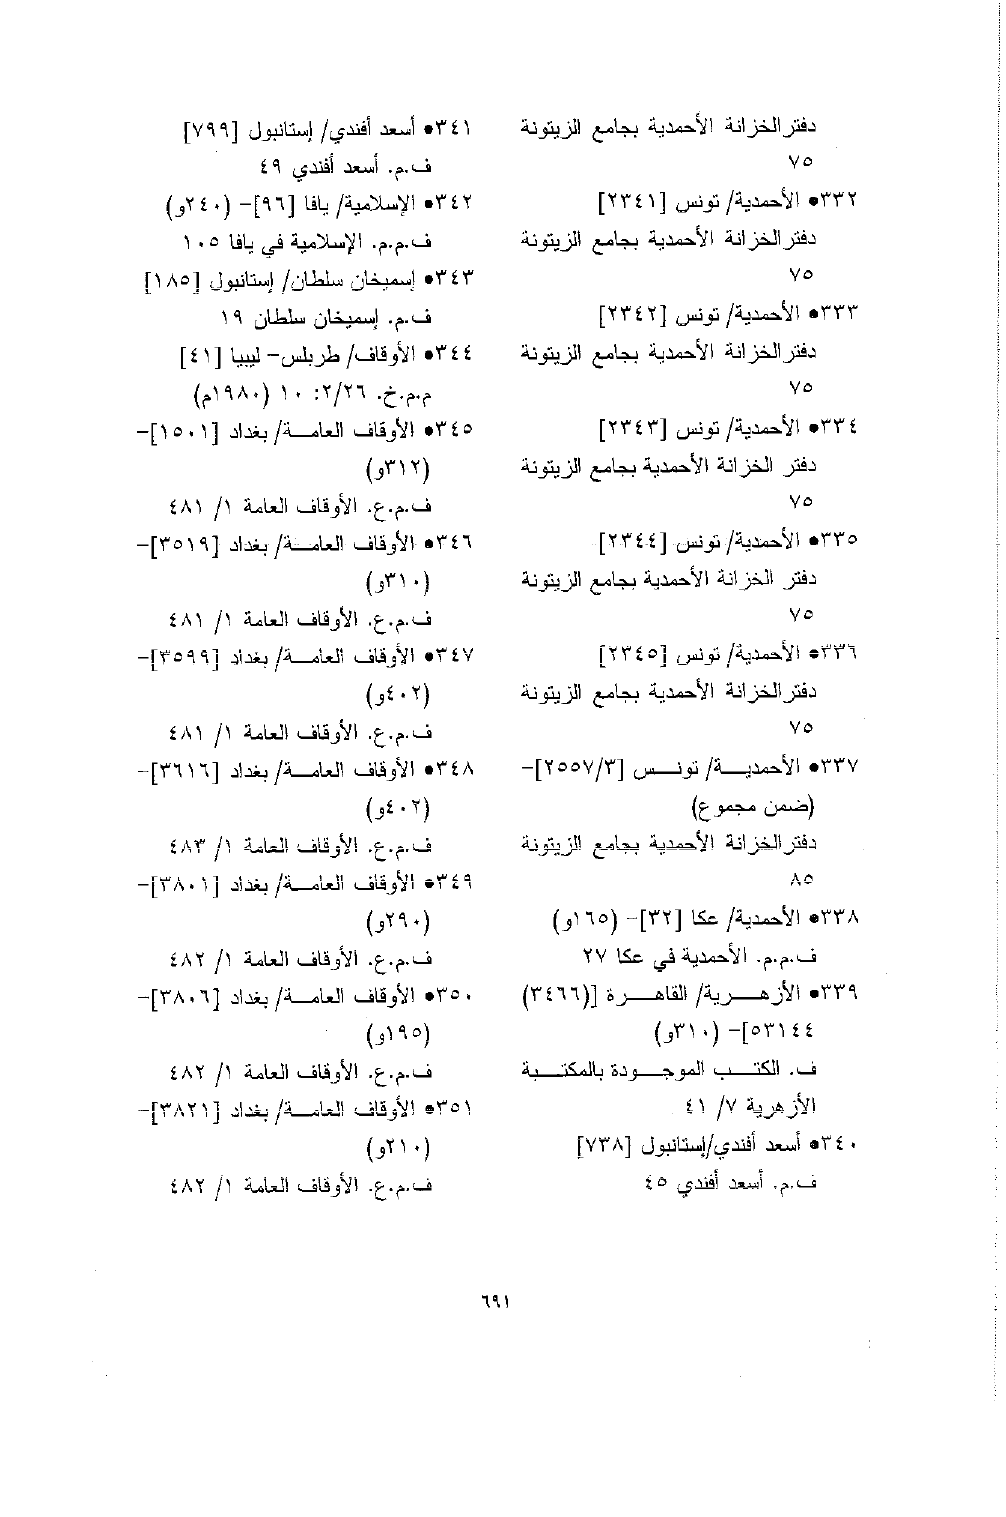 دفتر الخزانة الأحمدية بجامع الزيتونة
٧٥
٣٣٢• الأحمدية/ تونس [٢٣٤١]
دفتر الخزانة الأحمدية بجامع الزيتونة
٧٥
٣٣٣• الأحمدية/ تونس [٢٣٤٢]
دفتر الخزانة الأحمدية بجامع الزيتونة
٧٥
٣٣٤• الأحمدية/ تونس [٢٣٤٣]
دفتر الخزانة الأحمدية بجامع الزيتونة
٧٥
٣٣٥• الأحمدية/ تونس [٢٣٤٤]
دفتر الخزانة الأحمدية بجامع الزيتونة
٧٥
٣٣٦• الأحمدية/ تونس [٢٣٤٥]
دفتر الخزانة الأحمدية بجامع الزيتونة
٧٥
٣٣٧• الأحمديــة/ تونــس [٢٥٥٧/٣]-
(ضمن مجموع)
دفتر الخزانة الأحمدية بجامع الزيتونة
٨٥
٣٣٨• الأحمدية/ عكا [٣٢]- (١٦٥و)
ف.م.م. الأحمدية في عكا ٢٧
٣٣٩• الأزهــرية/ القاهــرة [(٣٤٦٦)
٥٣١٤٤]- (٣١٠و)
ف. الكتــب الموجــودة بالمكتــبة
الأزهرية ٧/ ٤١
٣٤٠• أسعد أفندي/إستانبول [٧٣٨]
ف.م. أسعد أفندي ٤٥
٣٤١• أسعد أفندي/ إستانبول [٧٩٩]
ف.م. أسعد أفندي ٤٩
٣٤٢• الإسلامية/ يافا [٩٦]- (٢٤٠و)
ف.م.م. الإسلامية في يافا ١٠٥
٣٤٣• إسميخان سلطان/ إستانبول [١٨٥]
ف.م. إسميخان سلطان ١٩
٣٤٤• الأوقاف/ طربلس- ليبيا [٤١]
م.م.خ. ٢/٢٦: ١٠ (١٩٨٠م)
٣٤٥• الأوقاف العامــة/ بغداد [١٥٠١]-
(٣١٢و)
ف.م.ع. الأوقاف العامة ١/ ٤٨١
٣٤٦• الأوقاف العامــة/ بغداد [٣٥١٩]-
(٣١٠و)
ف.م.ع. الأوقاف العامة ١/ ٤٨١
٣٤٧• الأوقاف العامــة/ بغداد [٣٥٩٩]-
(٤٠٢و)
ف.م.ع. الأوقاف العامة ١/ ٤٨١
٣٤٨• الأوقاف العامــة/ بغداد [٣٦١٦]-
(٤٠٢و)
ف.م.ع. الأوقاف العامة ١/ ٤٨٣
٣٤٩• الأوقاف العامــة/ بغداد [٣٨٠١]-
(٢٩٠و)
ف.م.ع. الأوقاف العامة ١/ ٤٨٢
٣٥٠• الأوقاف العامــة/ بغداد [٣٨٠٦]-
(١٩٥و)
ف.م.ع. الأوقاف العامة ١/ ٤٨٢
٣٥١• الأوقاف العامــة/ بغداد [٣٨٢١]-
(٢١٠و)
ف.م.ع. الأوقاف العامة ١/ ٤٨٢
٦٩١